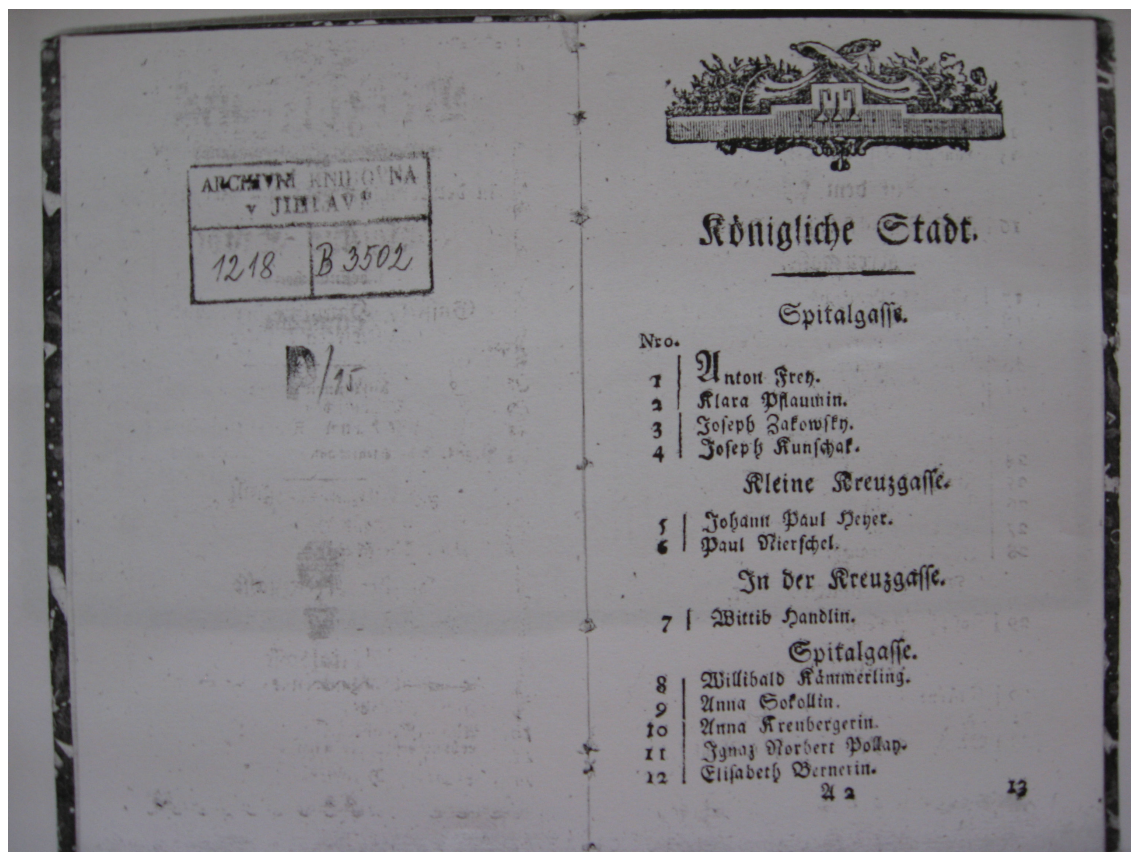 ARCHIVNÍ KNIHOVNA
v JIHLAVĚ
1218
B 3502
P/15
Königliche Stadt.
Spitalgasse.
Nro.
1 Anton Frey.
2 Klara Pflaumin.
3 Joseph Zakowsky.
4 Joseph Kunschak.
Kleine Kreuzgasse.
5 Johann Paul Heyer.
6 Paul Nierschel.
In der Kreuzgasse.
7 Wittib Handlin.
Spitalgasse.
8 Willibald Kämmerling.
9 Anna Sokollin.
10 Anna Krenbergerin.
11 Ignaz Norbert Pollay.
12 Elisabeth Bernerin.
A 2 13